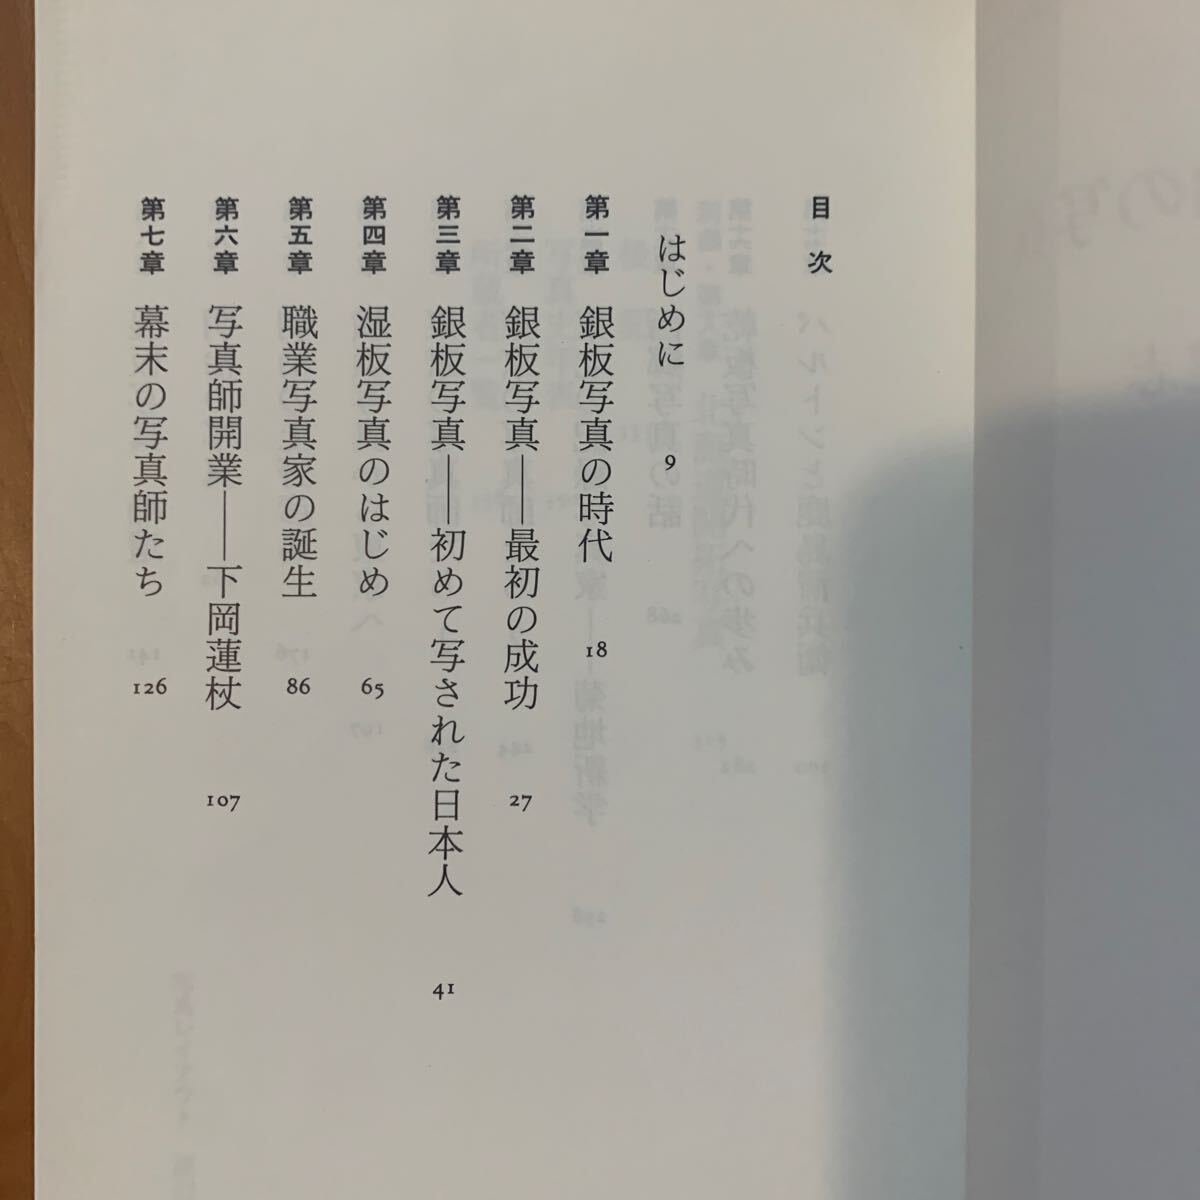 目次
はじめに 9
第一章 銀板写真の時代 18
第二章 銀板写真——最初の成功 27
第三章 銀板写真——初めて写された日本人 41
第四章 湿板写真のはじめ 65
第五章 職業写真家の誕生 86
第六章 写真師開業——下岡蓮杖 107
第七章 幕末の写真師たち 126